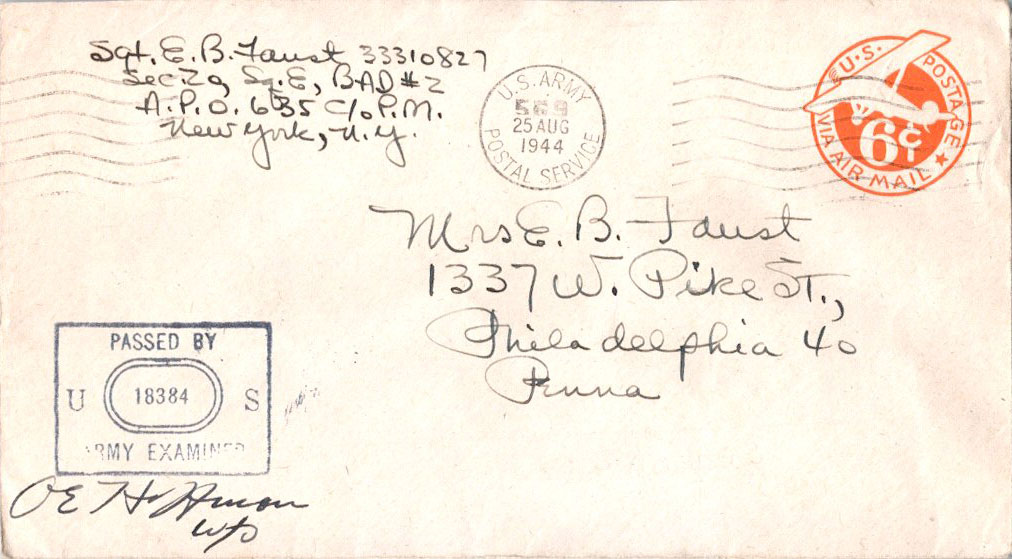 Sgt. E. B. Faust 33310827
Sec. 20, Sq. E, BAD #2
A.P.O. 635 c/o P.M.
New York, N.Y.
U.S. ARMY
569
25 AUG
1944
POSTAL SERVICE
U.S. POSTAGE
6¢
VIA AIR MAIL
Mrs E. B. Faust
1337 W. Pike St.,
Philadelphia 40
Penna
PASSED BY
U 18384 S
ARMY EXAMINER
OE Hoffman